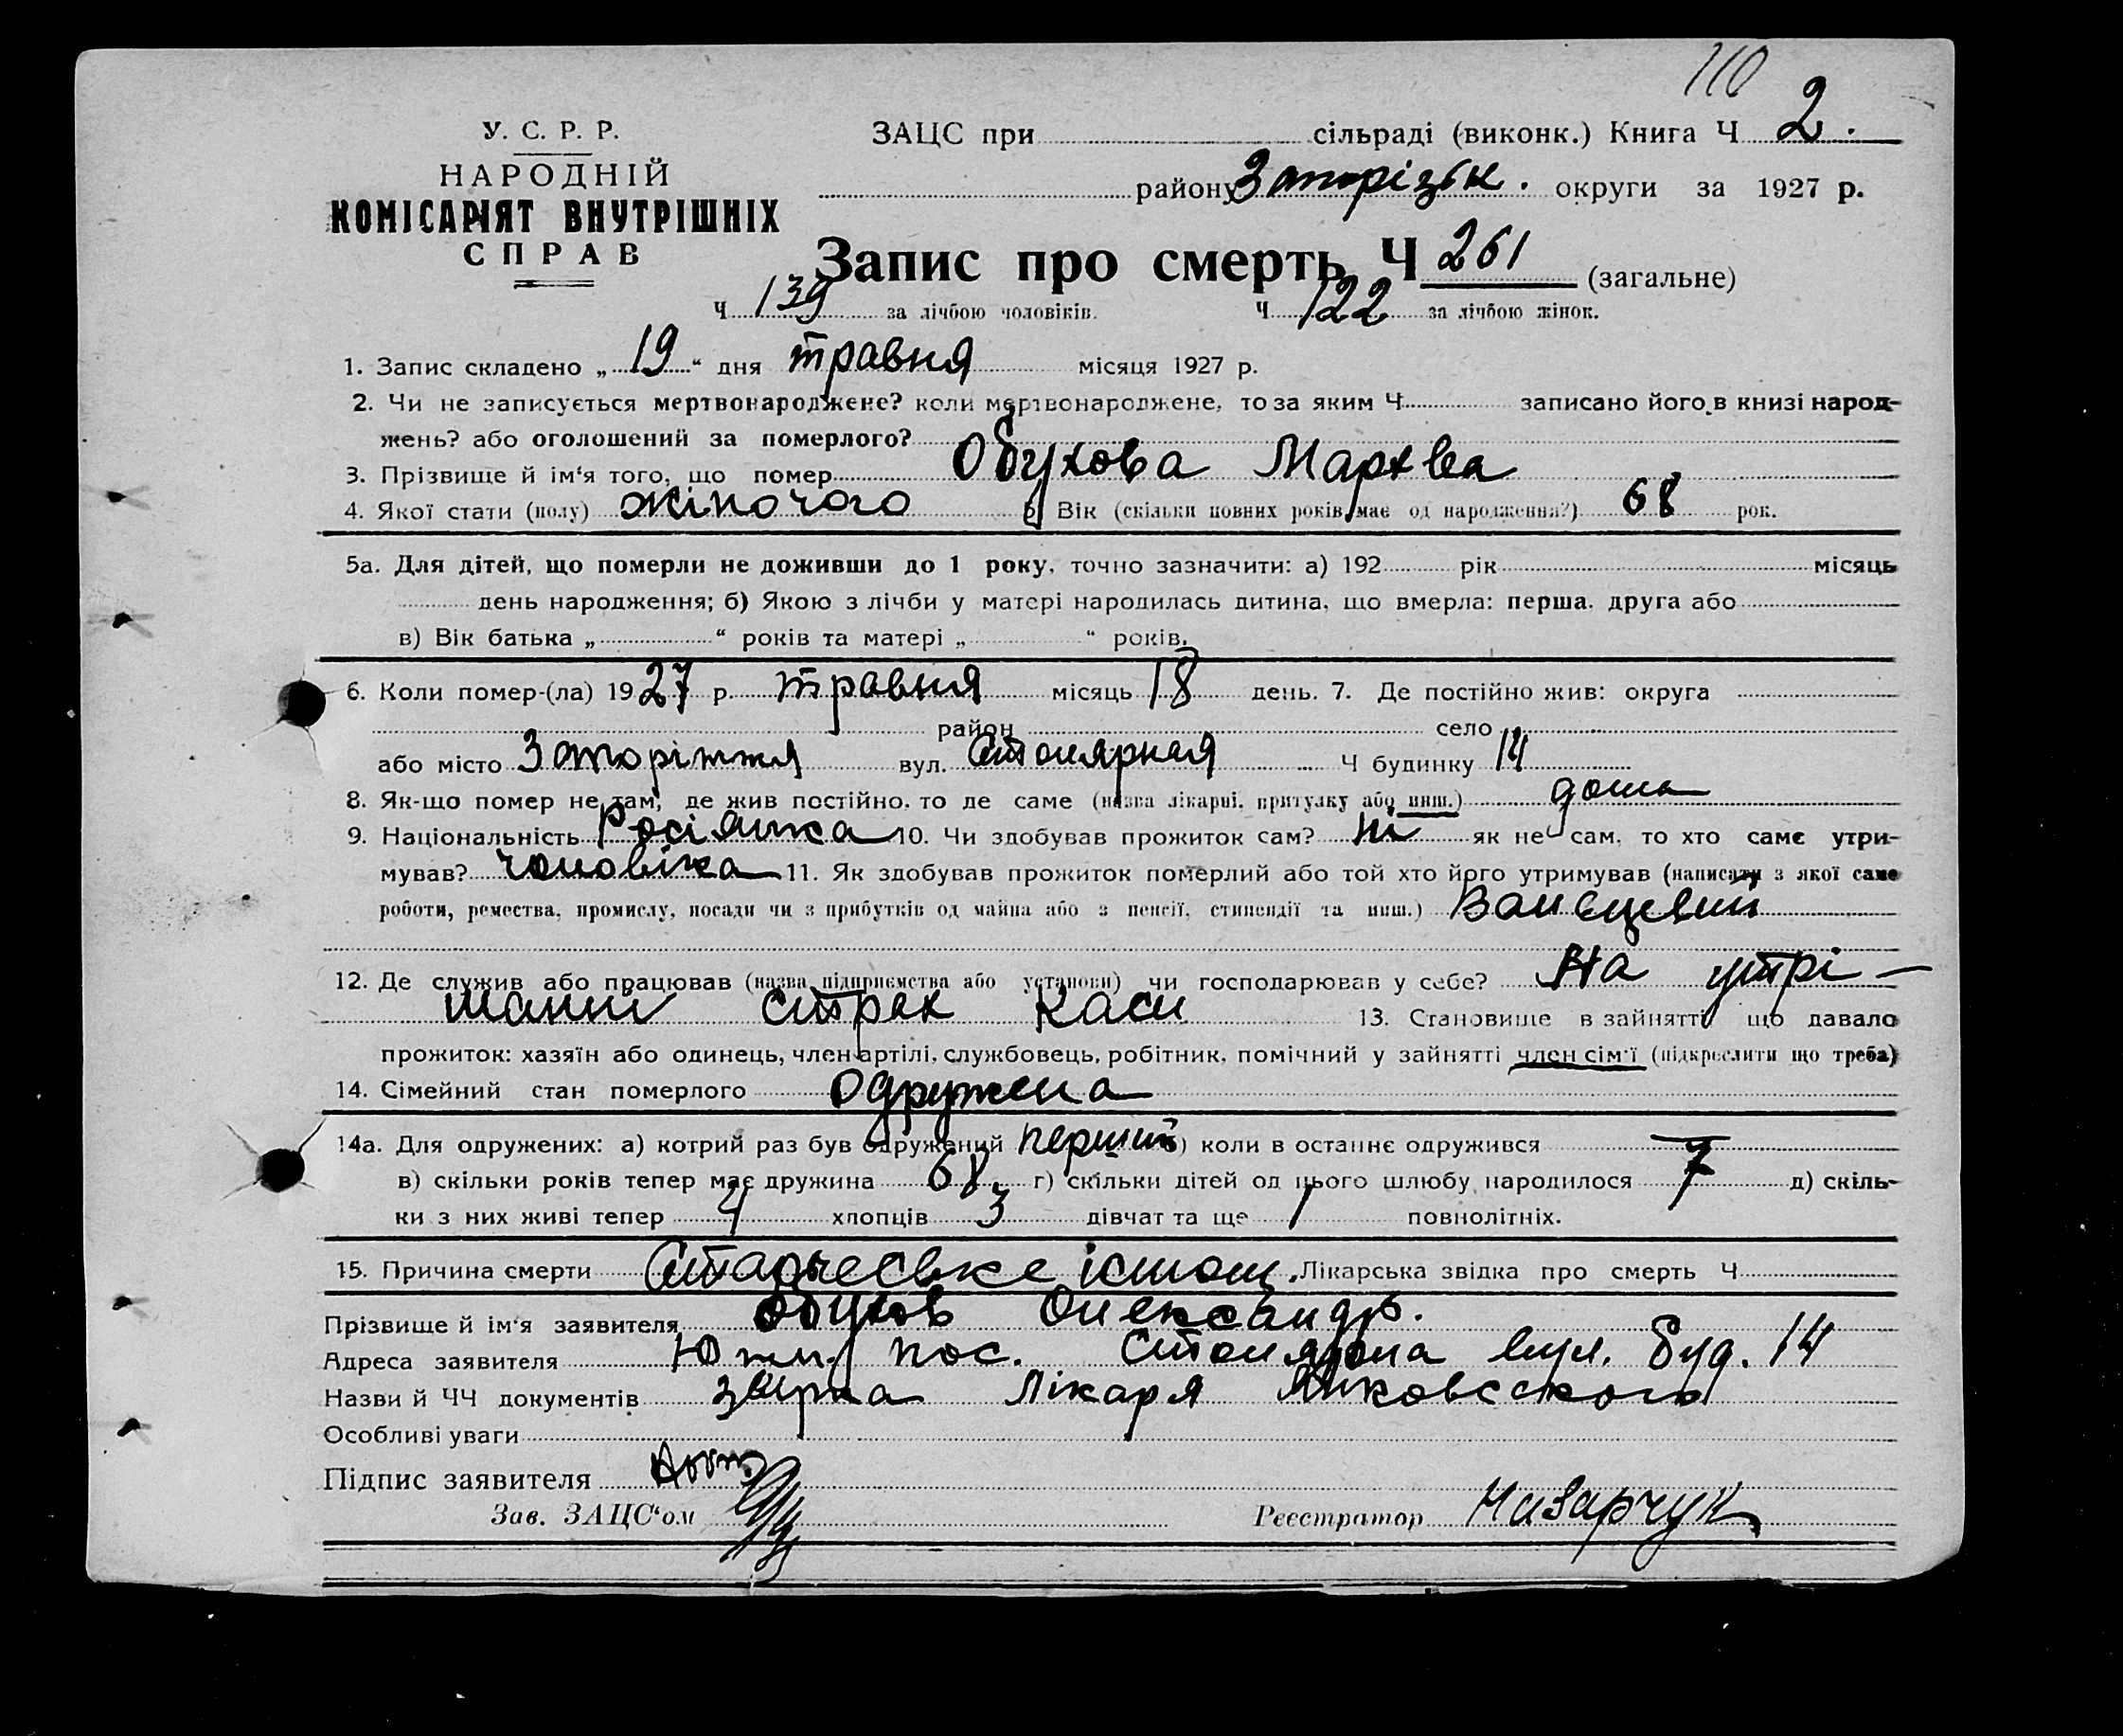 110
У. С. Р. Р.
НАРОДНІЙ
КОМІСАРІЯТ ВНУТРІШНІХ
СПРАВ
ЗАЦС при сільраді (виконк.) Книга Ч 2.
району Запорізьк. округи за 1927 р.
Запис про смерть Ч 261 (загальне)
Ч 139 за лічбою чоловіків. Ч 122 за лічбою жінок.
1. Запис складено „ 19 “ дня травня місяця 1927 р.
2. Чи не записується мертвонароджене? коли мертвонароджене, то за яким Ч записано його в книзі народ-
жень? або оголошений за померлого?
3. Прізвище й ім‘я того, що помер Обухова Мархва
4. Якої стати (полу) жіночого 5. Вік (скільки повних років має од народження?) 68 рок.
5а. Для дітей, що померли не доживши до 1 року, точно зазначити: а) 192 рік місяць
день народження; б) Якою з лічби у матері народилась дитина, що вмерла: перша, друга або
в) Вік батька „ “ років та матері „ “ років.
6. Коли помер-(ла) 1927 р. травня місяць 18 день. 7. Де постійно жив: округа
район село
або місто Запоріжжя вул. Столярная Ч будинку 14
8. Як-що помер не там, де жив постійно, то де саме (назва лікарні, притулку або инш.) дома
9. Національність Росіянка 10. Чи здобував прожиток сам? ні як не сам, то хто саме утри-
мував? чоловіка 11. Як здобував прожиток померлий або той хто його утримував (написати з якої саме
роботи, ремества, промислу, посади чи з прибутків од майна або з пенсії, стипендії та инш.)
12. Де служив або працював (назва підприємства або установи) чи господарював у себе? На утрі-
манні страх каси 13. Становище в зайнятті що давало
прожиток: хазяїн або одинець, член артілі, службовець, робітник, помічний у зайнятті член сім‘ї (підкреслити що треба)
14. Сімейний стан померлого Одружена
14а. Для одружених: а) котрий раз був одружений перший б) коли в останнє одружився —
в) скільки років тепер має дружина 68 г) скільки дітей од цього шлюбу народилося 7 д) скіль-
ки з них живі тепер 4 хлопців 3 дівчат та ще 1 повнолітніх.
15. Причина смерти Старческе істощ. Лікарська звідка про смерть Ч
Прізвище й ім‘я заявителя Обухов Олександр.
Адреса заявителя Южн. пос. Столярна вул. буд. 14
Назви й ЧЧ документів лікаря Янковсского
Особливі уваги
Підпис заявителя
Зав. ЗАЦС‘ом Реєстратор Назарчук